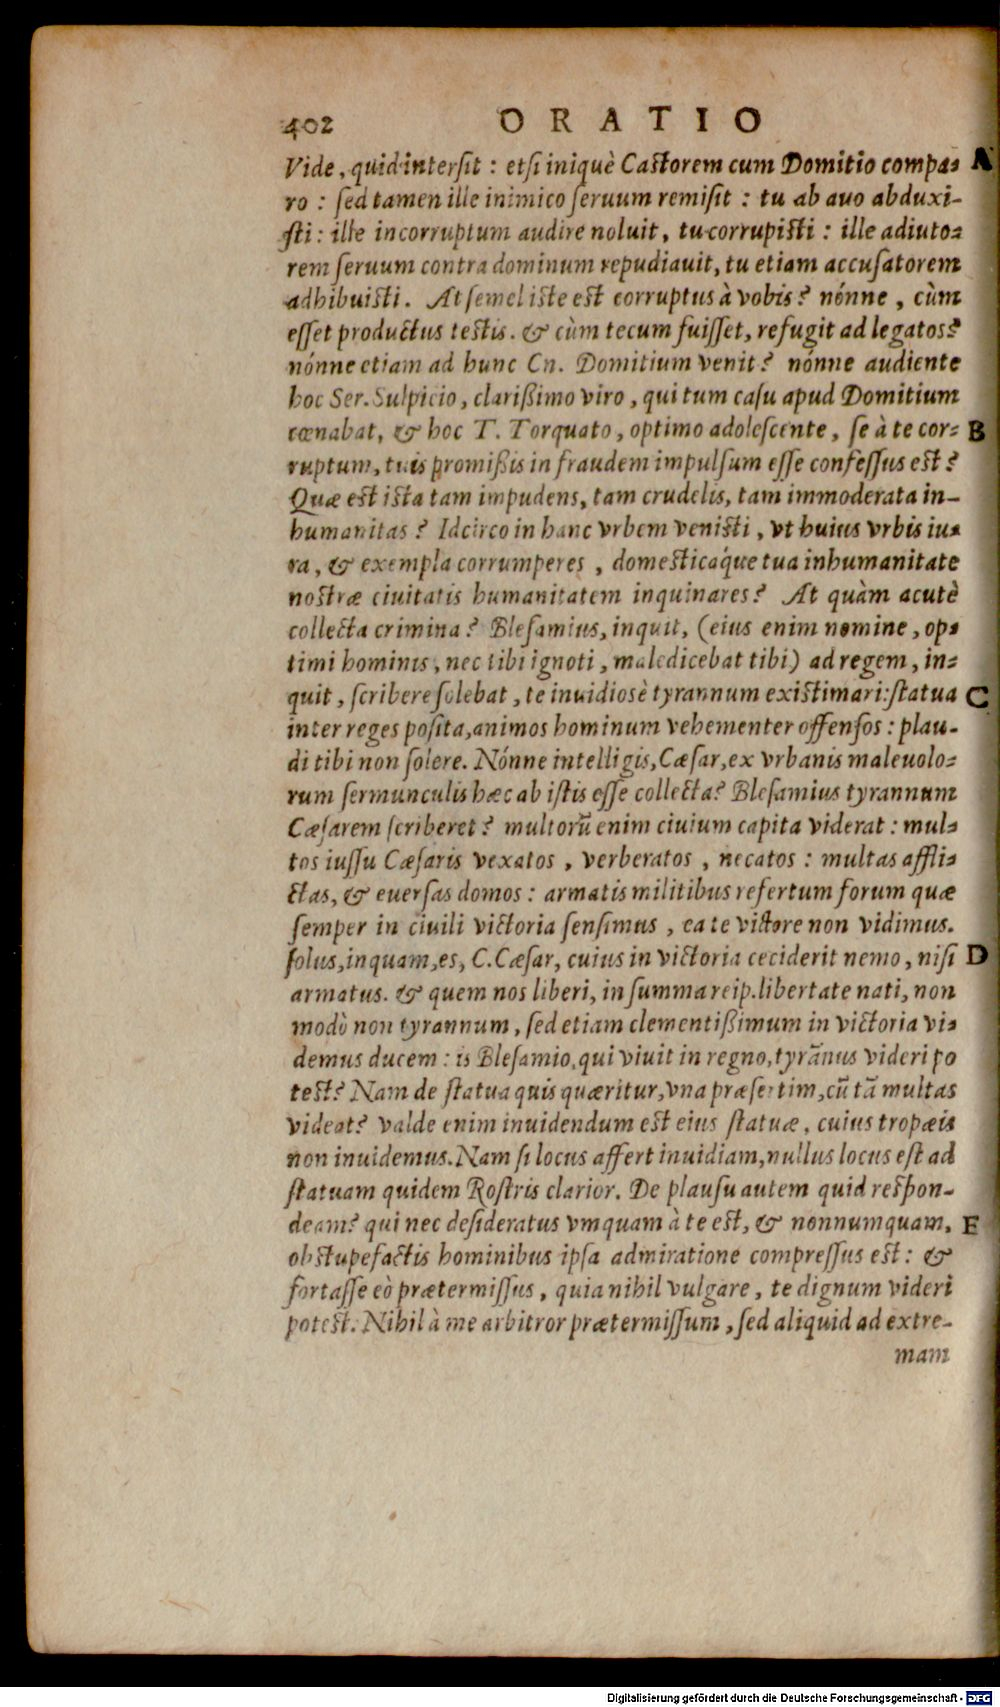 402 ORATIO
Vide, quid intersit: etsi iniquè Castorem cum Domitio compa- A
ro: sed tamen ille inimico seruum remisit: tu ab auo abduxi-
sti: ille incorruptum audire noluit, tu corrupisti: ille adiuto-
rem seruum contra dominum repudiauit, tu etiam accusatorem
adhibuisti. At semel iste est corruptus à vobis? nónne, cùm
esset productus testis. & cùm tecum fuisset, refugit ad legatos?
nónne etiam ad hunc Cn. Domitium venit? nónne audiente
hoc Ser. Sulpicio, clarißimo viro, qui tum casu apud Domitium
cœnabat, & hoc T. Torquato, optimo adolescente, se à te cor- B
ruptum, tuis promißis in fraudem impulsum esse confessus est?
Quæ est ista tam impudens, tam crudelis, tam immoderata in-
humanitas? Idcirco in hanc vrbem venisti, vt huius vrbis iu-
ra, & exempla corrumperes, domesticáque tua inhumanitate
nostræ ciuitatis humanitatem inquinares? At quàm acutè
collecta crimina? Blesamius, inquit, (eius enim nomine, op-
timi hominis, nec tibi ignoti, maledicebat tibi) ad regem, in-
quit, scribere solebat, te inuidiosè tyrannum existimari: statua C
inter reges posita, animos hominum vehementer offensos: plau-
di tibi non solere. Nónne intelligis, Cæsar, ex vrbanis maleuolo-
rum sermunculis hæc ab istis esse collecta? Blesamius tyrannum
Cæsarem scriberet? multorũ enim ciuium capita viderat: mul-
tos iussu Cæsaris vexatos, verberatos, necatos: multas affli-
ctas, & euersas domos: armatis militibus refertum forum quæ
semper in ciuili victoria sensimus, ea te victore non vidimus.
solus, inquam, es, C. Cæsar, cuius in victoria ceciderit nemo, nisi D
armatus. & quem nos liberi, in summa reip. libertate nati, non
modò non tyrannum, sed etiam clementißimum in victoria vi-
demus ducem: is Blesamio, qui viuit in regno, tyrãnus videri po
test? Nam de statua quis quæritur, vna præsertim, cũ tã multas
videat? valde enim inuidendum est eius statuæ, cuius tropæis
non inuidemus. Nam si locus affert inuidiam, nullus locus est ad
statuam quidem Rostris clarior. De plausu autem quid respon-
deam? qui nec desideratus vmquam à te est, & nonnumquam, E
obstupefactis hominibus ipsa admiratione compressus est: &
fortasse eò prætermissus, quia nihil vulgare, te dignum videri
potest. Nihil à me arbitror prætermissum, sed aliquid ad extre-
mam
Digitalisierung gefördert durch die Deutsche Forschungsgemeinschaft - DFG